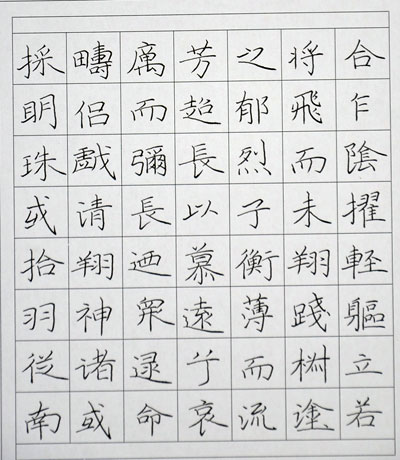 合乍陰擢軽軀立若
将飛而未翔踐椒塗
之郁烈步衡薄而流
芳超長以慕遠兮哀
厲而彌長迺眾逯命
疇侶戲清翔神渚或
採明珠或拾羽從南